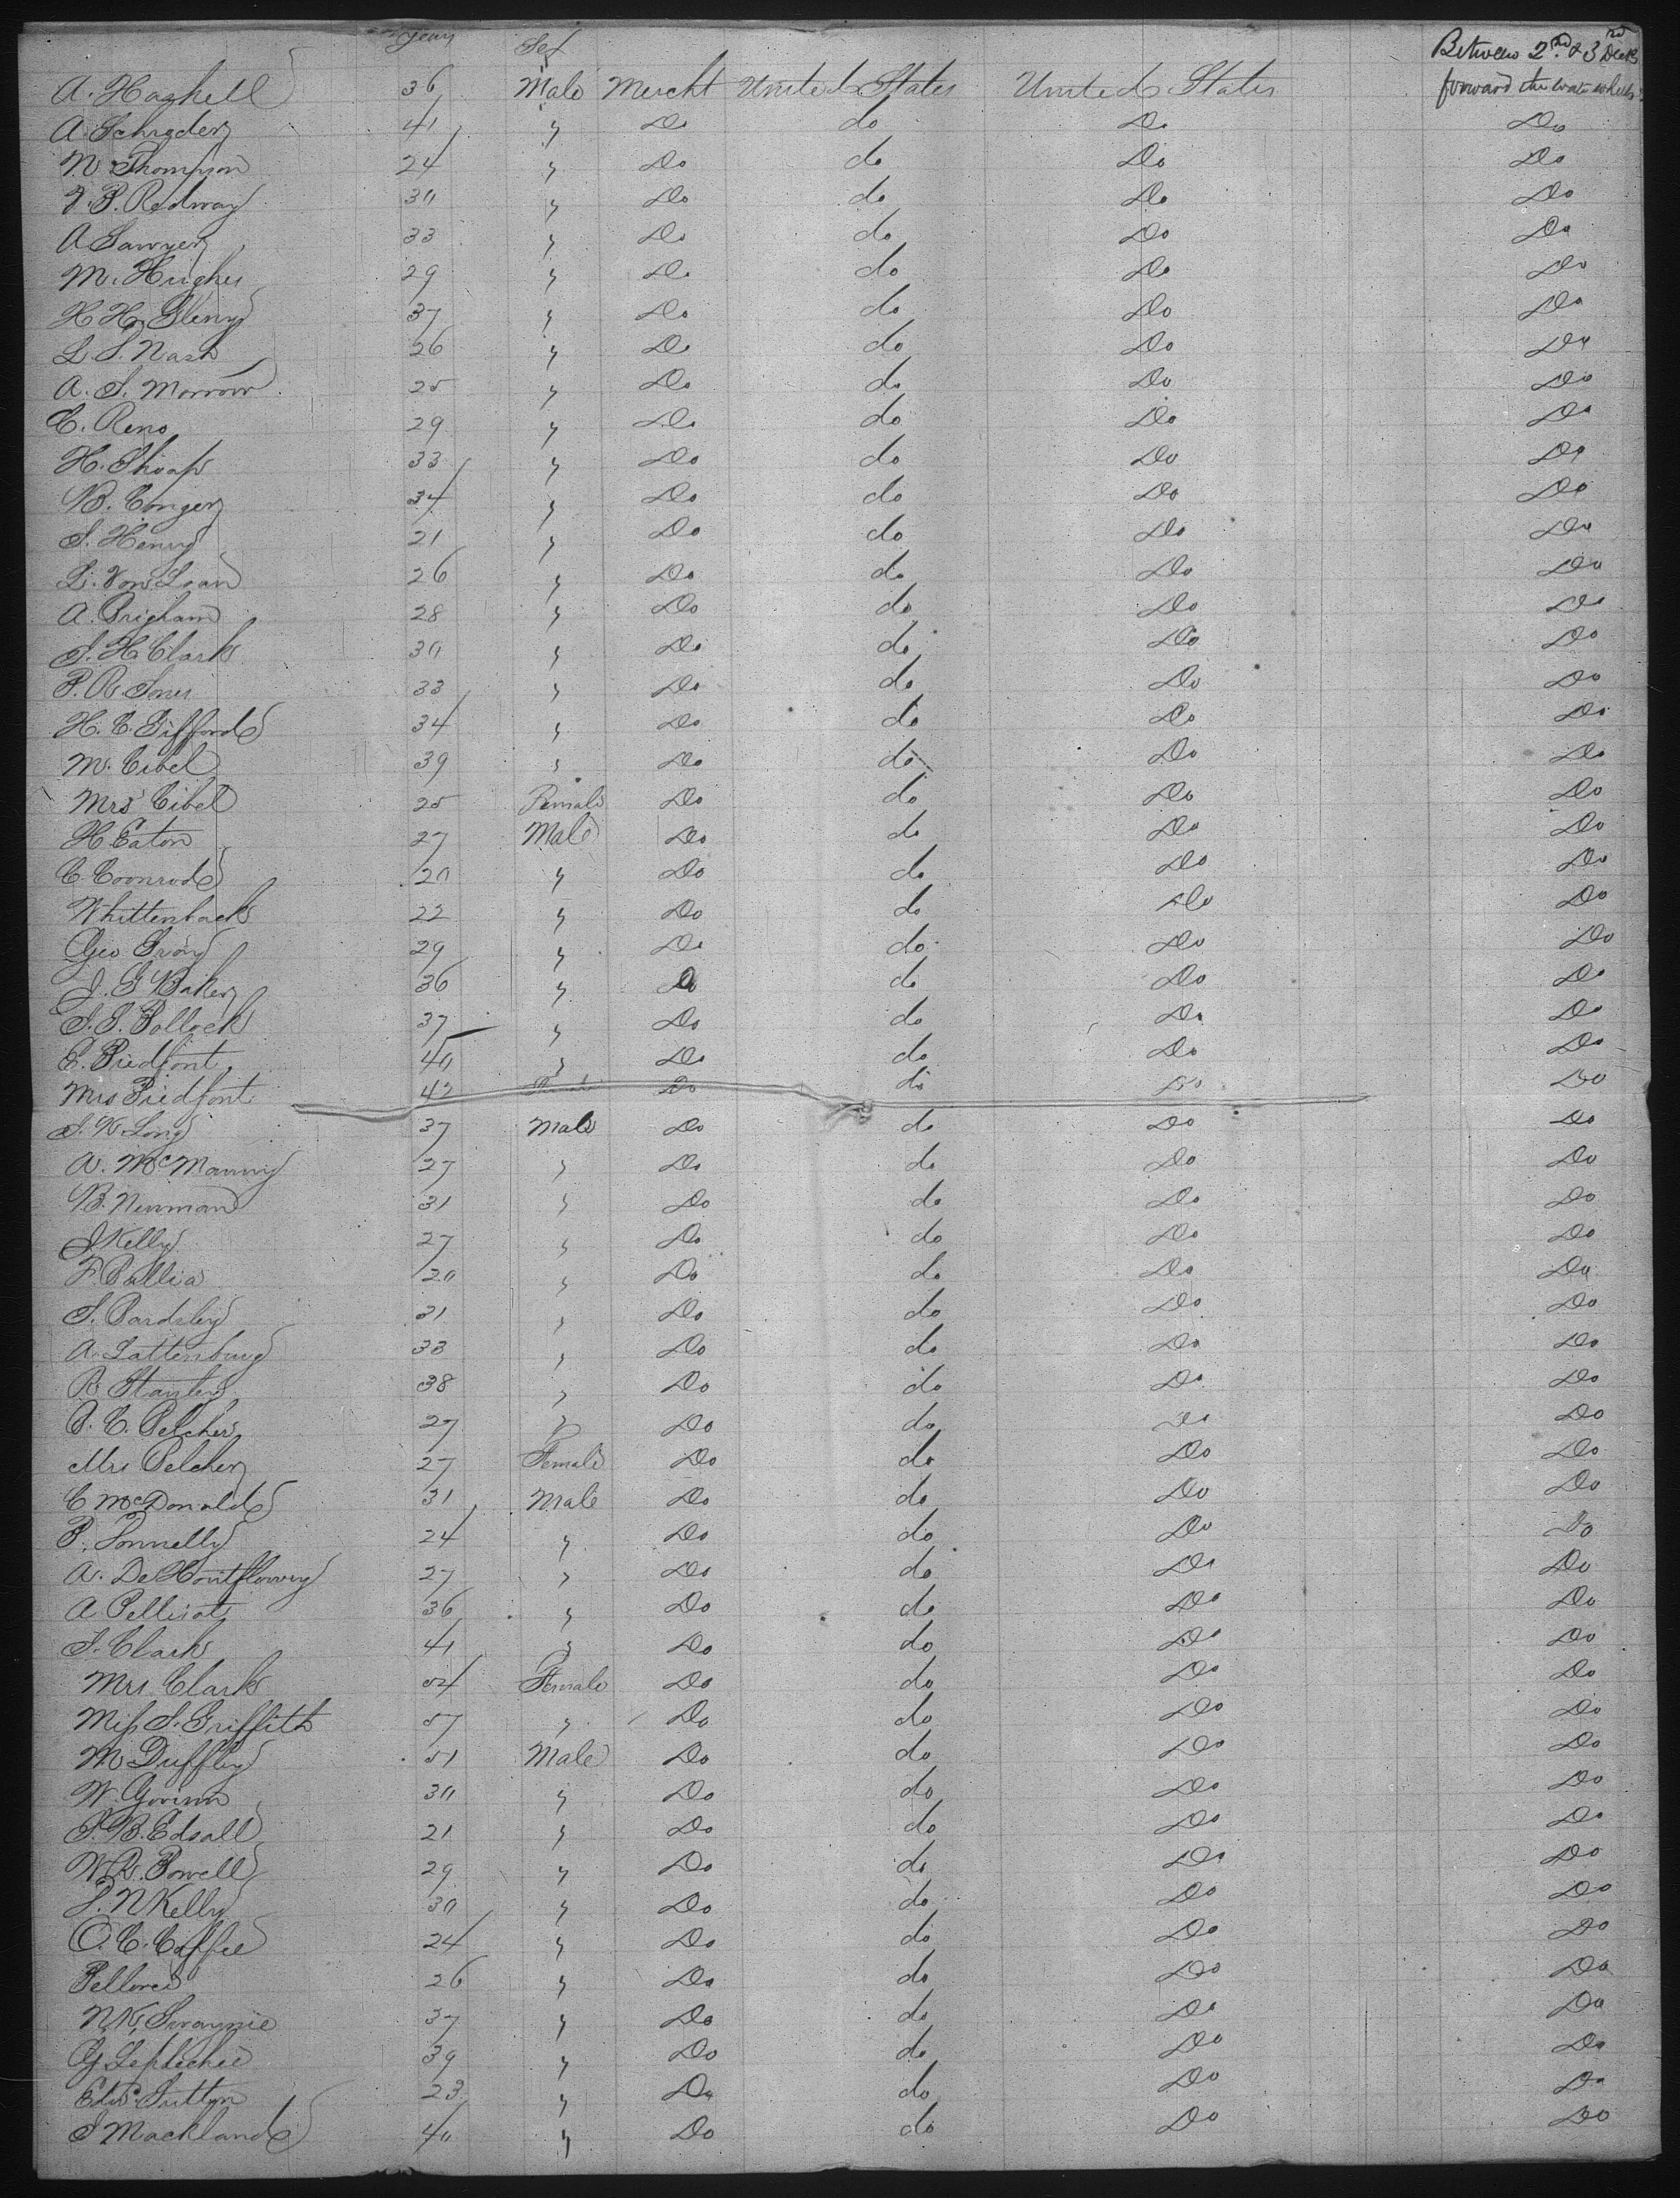 years Sex Between 2nd & 3rd Decks
A. Haskell 36 Male Mercht United States United States forward the water wheels
A. Schroder 41 " Do do Do Do
N. Thompson 24 " Do do Do Do
P. Redway 30 " Do do Do Do
A Sawyer 33 " Do do Do Do
M. Hughes 29 " Do do Do Do
H. H. Gleny 37 " Do do Do Do
L. S. Nash 26 " Do do Do Do
A. S. Morrow 25 " Do do Do Do
C. Reno 29 " Do do Do Do
H. Shoaf 33 " Do do Do Do
B. Conger 34 " Do do Do Do
S. Henry 21 " Do do Do Do
L. Von Loan 26 " Do do Do Do
A. Brigham 28 " Do do Do Do
S. H. Clark 30 " Do do Do Do
P. R. Jones 33 " Do do Do Do
H. C. Gifford 34 " Do do Do Do
M. Cibel 39 " Do do Do Do
Mrs Cibel 25 Female Do do Do Do
H. Eaton 27 Male Do do Do Do
C. Coonrod 20 " Do do Do Do
Whittenback 22 " Do do Do Do
Geo Gray 29 " Do do Do Do
J. G Baker 36 " Do do Do Do
S. S. Pollock 37 " Do do Do Do
E. Piedfont 40 " Do do Do Do
Mrs Piedfont 42 Do do Do Do
S. W Long 37 Male Do do Do Do
A. McManny 27 " Do do Do Do
B. Newman 31 " Do do Do Do
J Kelly 27 " Do do Do Do
F. Pallia 20 " Do do Do Do
S. Bardsley 31 " Do do Do Do
A. Lattenburg 33 " Do do Do Do
R Stanley 38 " Do do Do Do
C. Belcher 27 " Do do Do Do
Mrs Belcher 27 Female Do do Do Do
C McDonald 31 Male Do do Do Do
P. Donnelly 24 " Do do Do Do
A. De 27 " Do do Do Do
A Pellisot 36 " Do do Do Do
J. Clark 41 " Do do Do Do
Mrs Clark 54 Female Do do Do Do
Miss S. Griffith 57 " Do do Do Do
M Duffley 51 Male Do do Do Do
W. 30 " Do do Do Do
S. B. Edsall 21 " Do do Do Do
W. R. Powell 29 " Do do Do Do
P. N Kelly 30 " Do do Do Do
O. C. Coffee 24 " Do do Do Do
Pellorce 26 " Do do Do Do
N. K. Swaynie 37 " Do do Do Do
G. 39 " Do do Do Do
Edw. Sutton 23 " Do do Do Do
J Mackland 40 " Do do Do Do